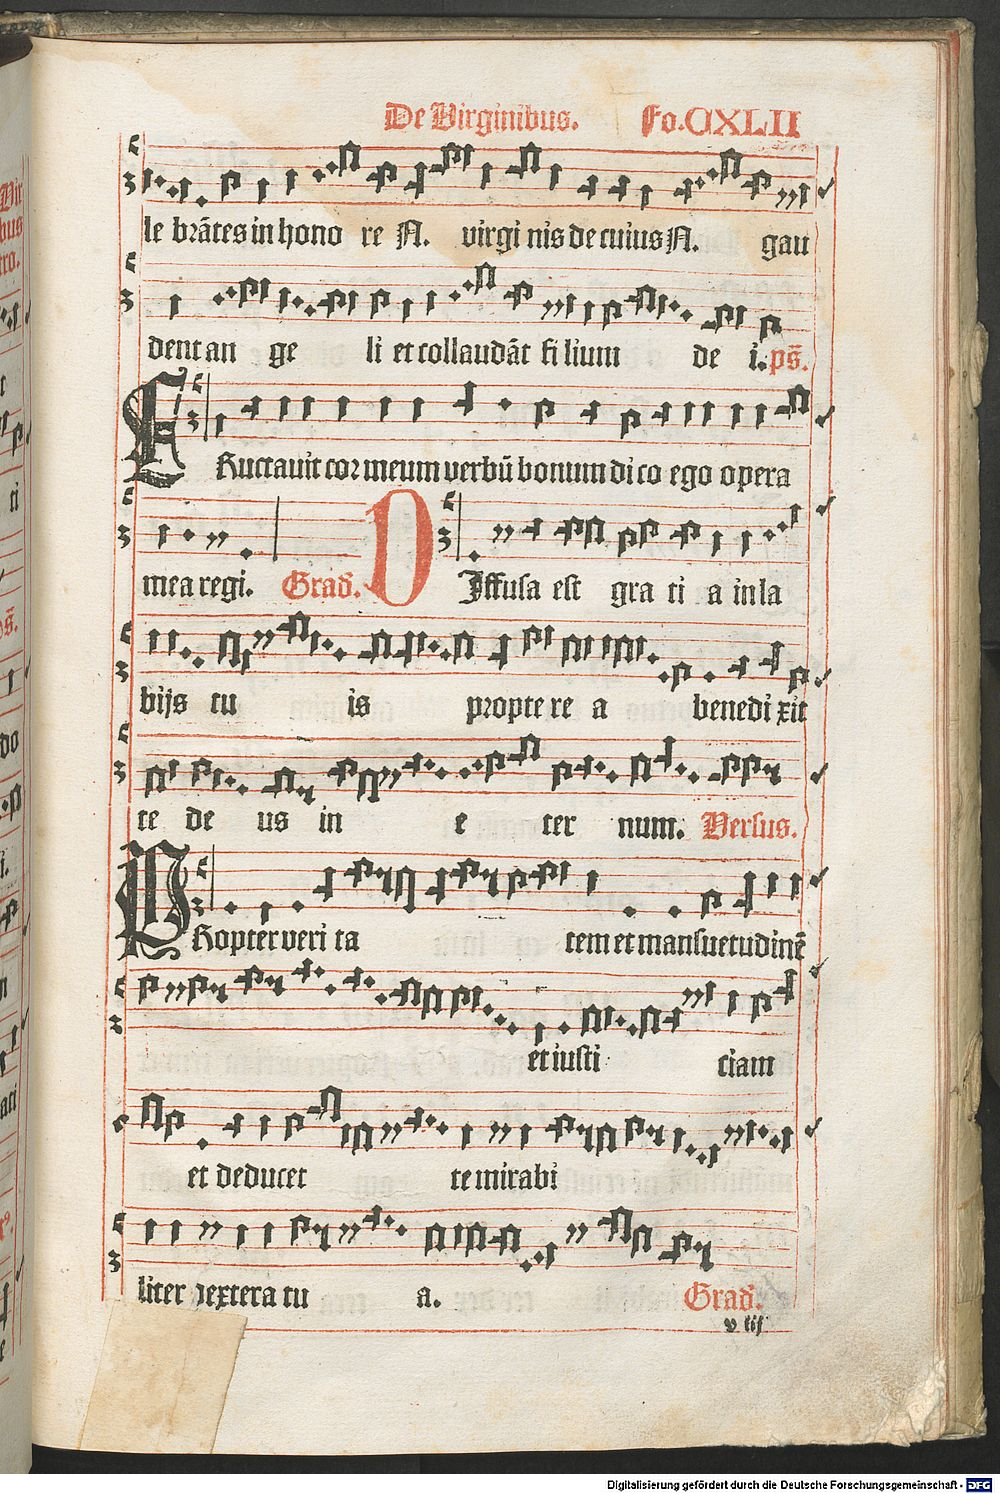 De Virginibus. Fo. CXLII
le brãtes in hono re N. virgi nis de cuius N. gau
dent an ge li et collaudãt fi lium de i. ps̃.
ERuctauit cor meum verbũ bonum di co ego opera
mea regi. Grad̃. DIffusa est gra ti a in la
bijs tu is propte re a benedi xit
te de us in e ter num. Versus.
PRopter veri ta tem et mansuetudinẽ
et iusti ciam
et deducet te mirabi
liter dextera tu a. Grad̃.
v iij
Digitalisierung gefördert durch die Deutsche Forschungsgemeinschaft - DFG